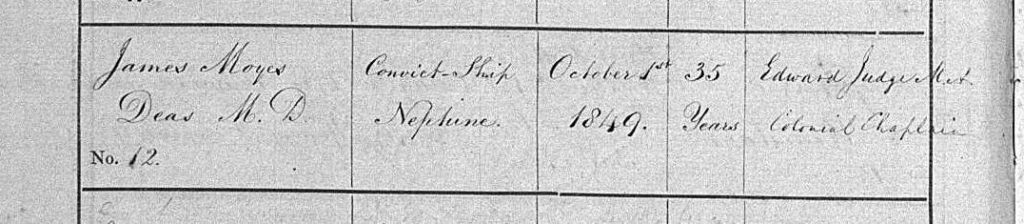 James Moyes
Deas M. D.
No. 12.
Convict-Ship
Neptune.
October 1st
1849.
35
Years
Edward Judge M.A.
Colonial Chaplain